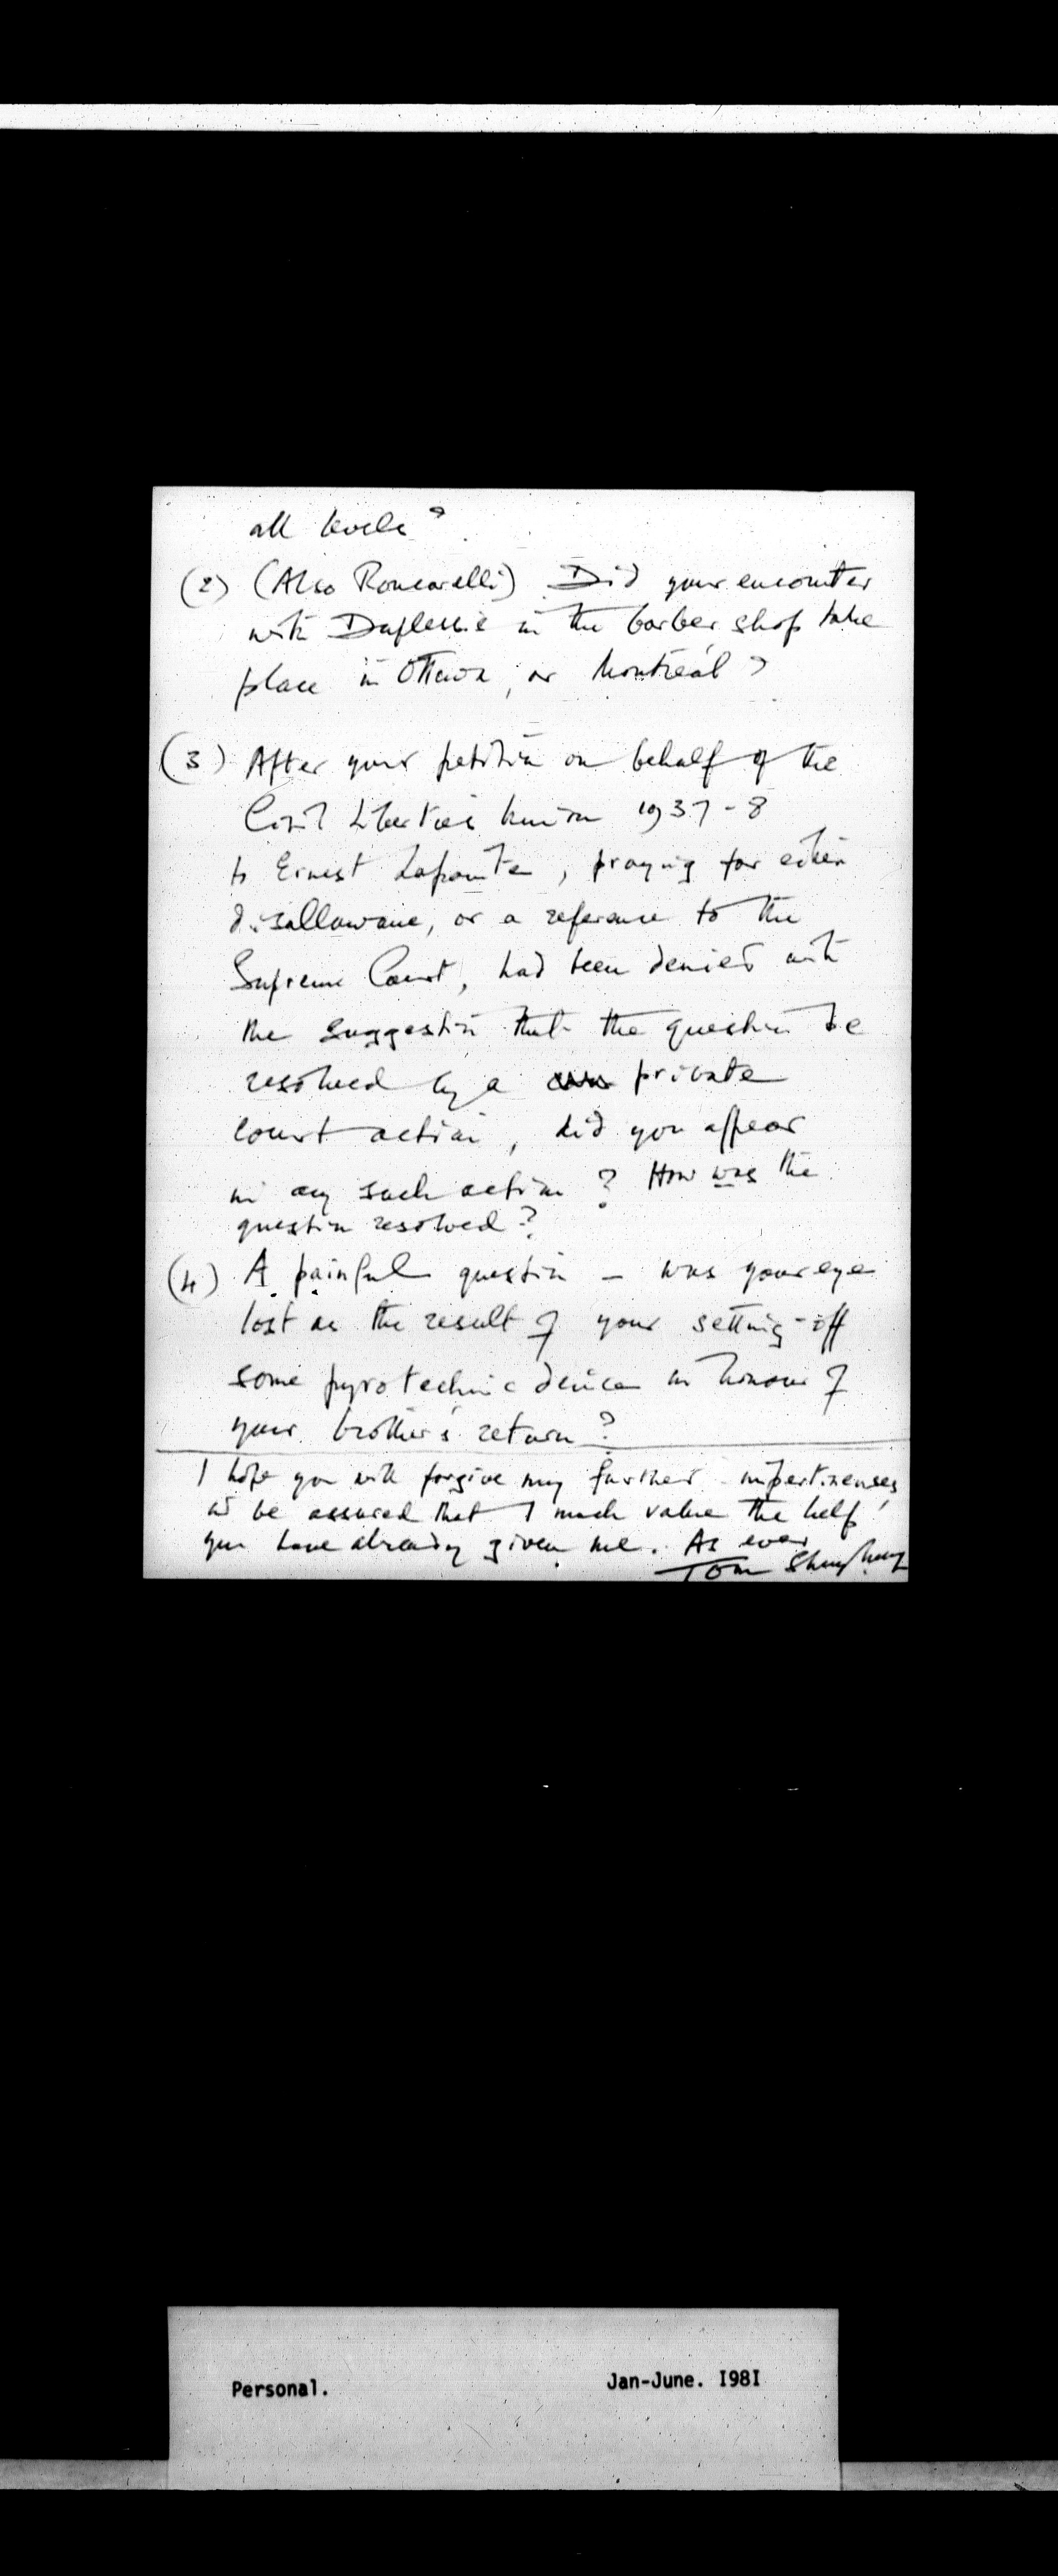 all levels?
(2) (Also Roncarelli) Did your encounter
with Duplessis in the barber shop take
place in Ottawa, or Montréal?
(3) After your petition on behalf of the
Civil Liberties Union 1937-8
to Ernest Lapointe, praying for either
disallowance, or a reference to the
Supreme Court, had been denied with
the suggestion that the question be
resolved by a private
court action, did you appear
in any such action? How was the
question resolved?
(4) A painful question - was your eye
lost as the result of your setting-off
some pyrotechnic device in honour of
your brother's return?
I hope you will forgive my further impertinences
and be assured that I much value the help
you have already given me. As ever
Tom
Personal. Jan-June. 1981